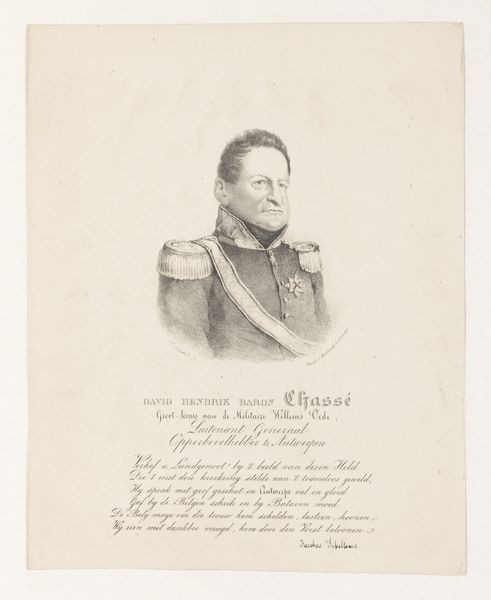 DAVID HENDRIK BARON Chassé
Groot-kruis van de Militaire Willems Orde,
Luitenant Generaal
Opperbevelhebber te Antwerpen
Verhef u Landgenoot! by 't beeld van dezen Held
Die 't eerst den krijgskring stelde aan 't toomeloos geweld,
Hy sprak met grof geschut en Antwerps val en gloed
Gaf by de Belgen schrik en by Bataven moed.
De Belg moge om die trouw hem schelden, lasteren, hoonen,
Wy zien met dankbre vreugd, hem door den Vorst beloonen.
Jacobus